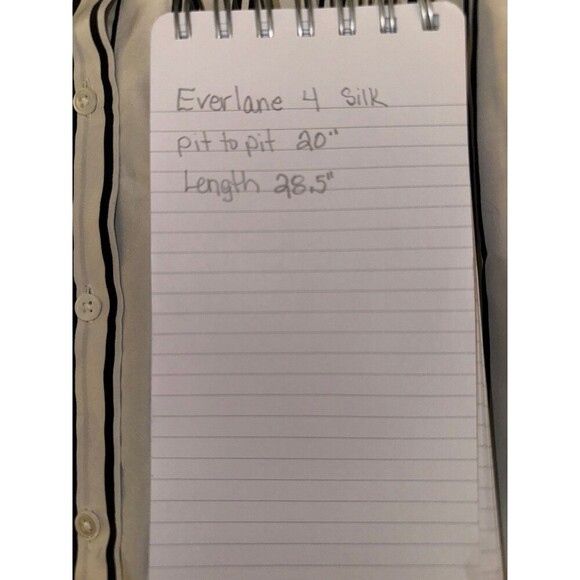 Everlane 4 Silk
pit to pit 20"
Length 28.5"